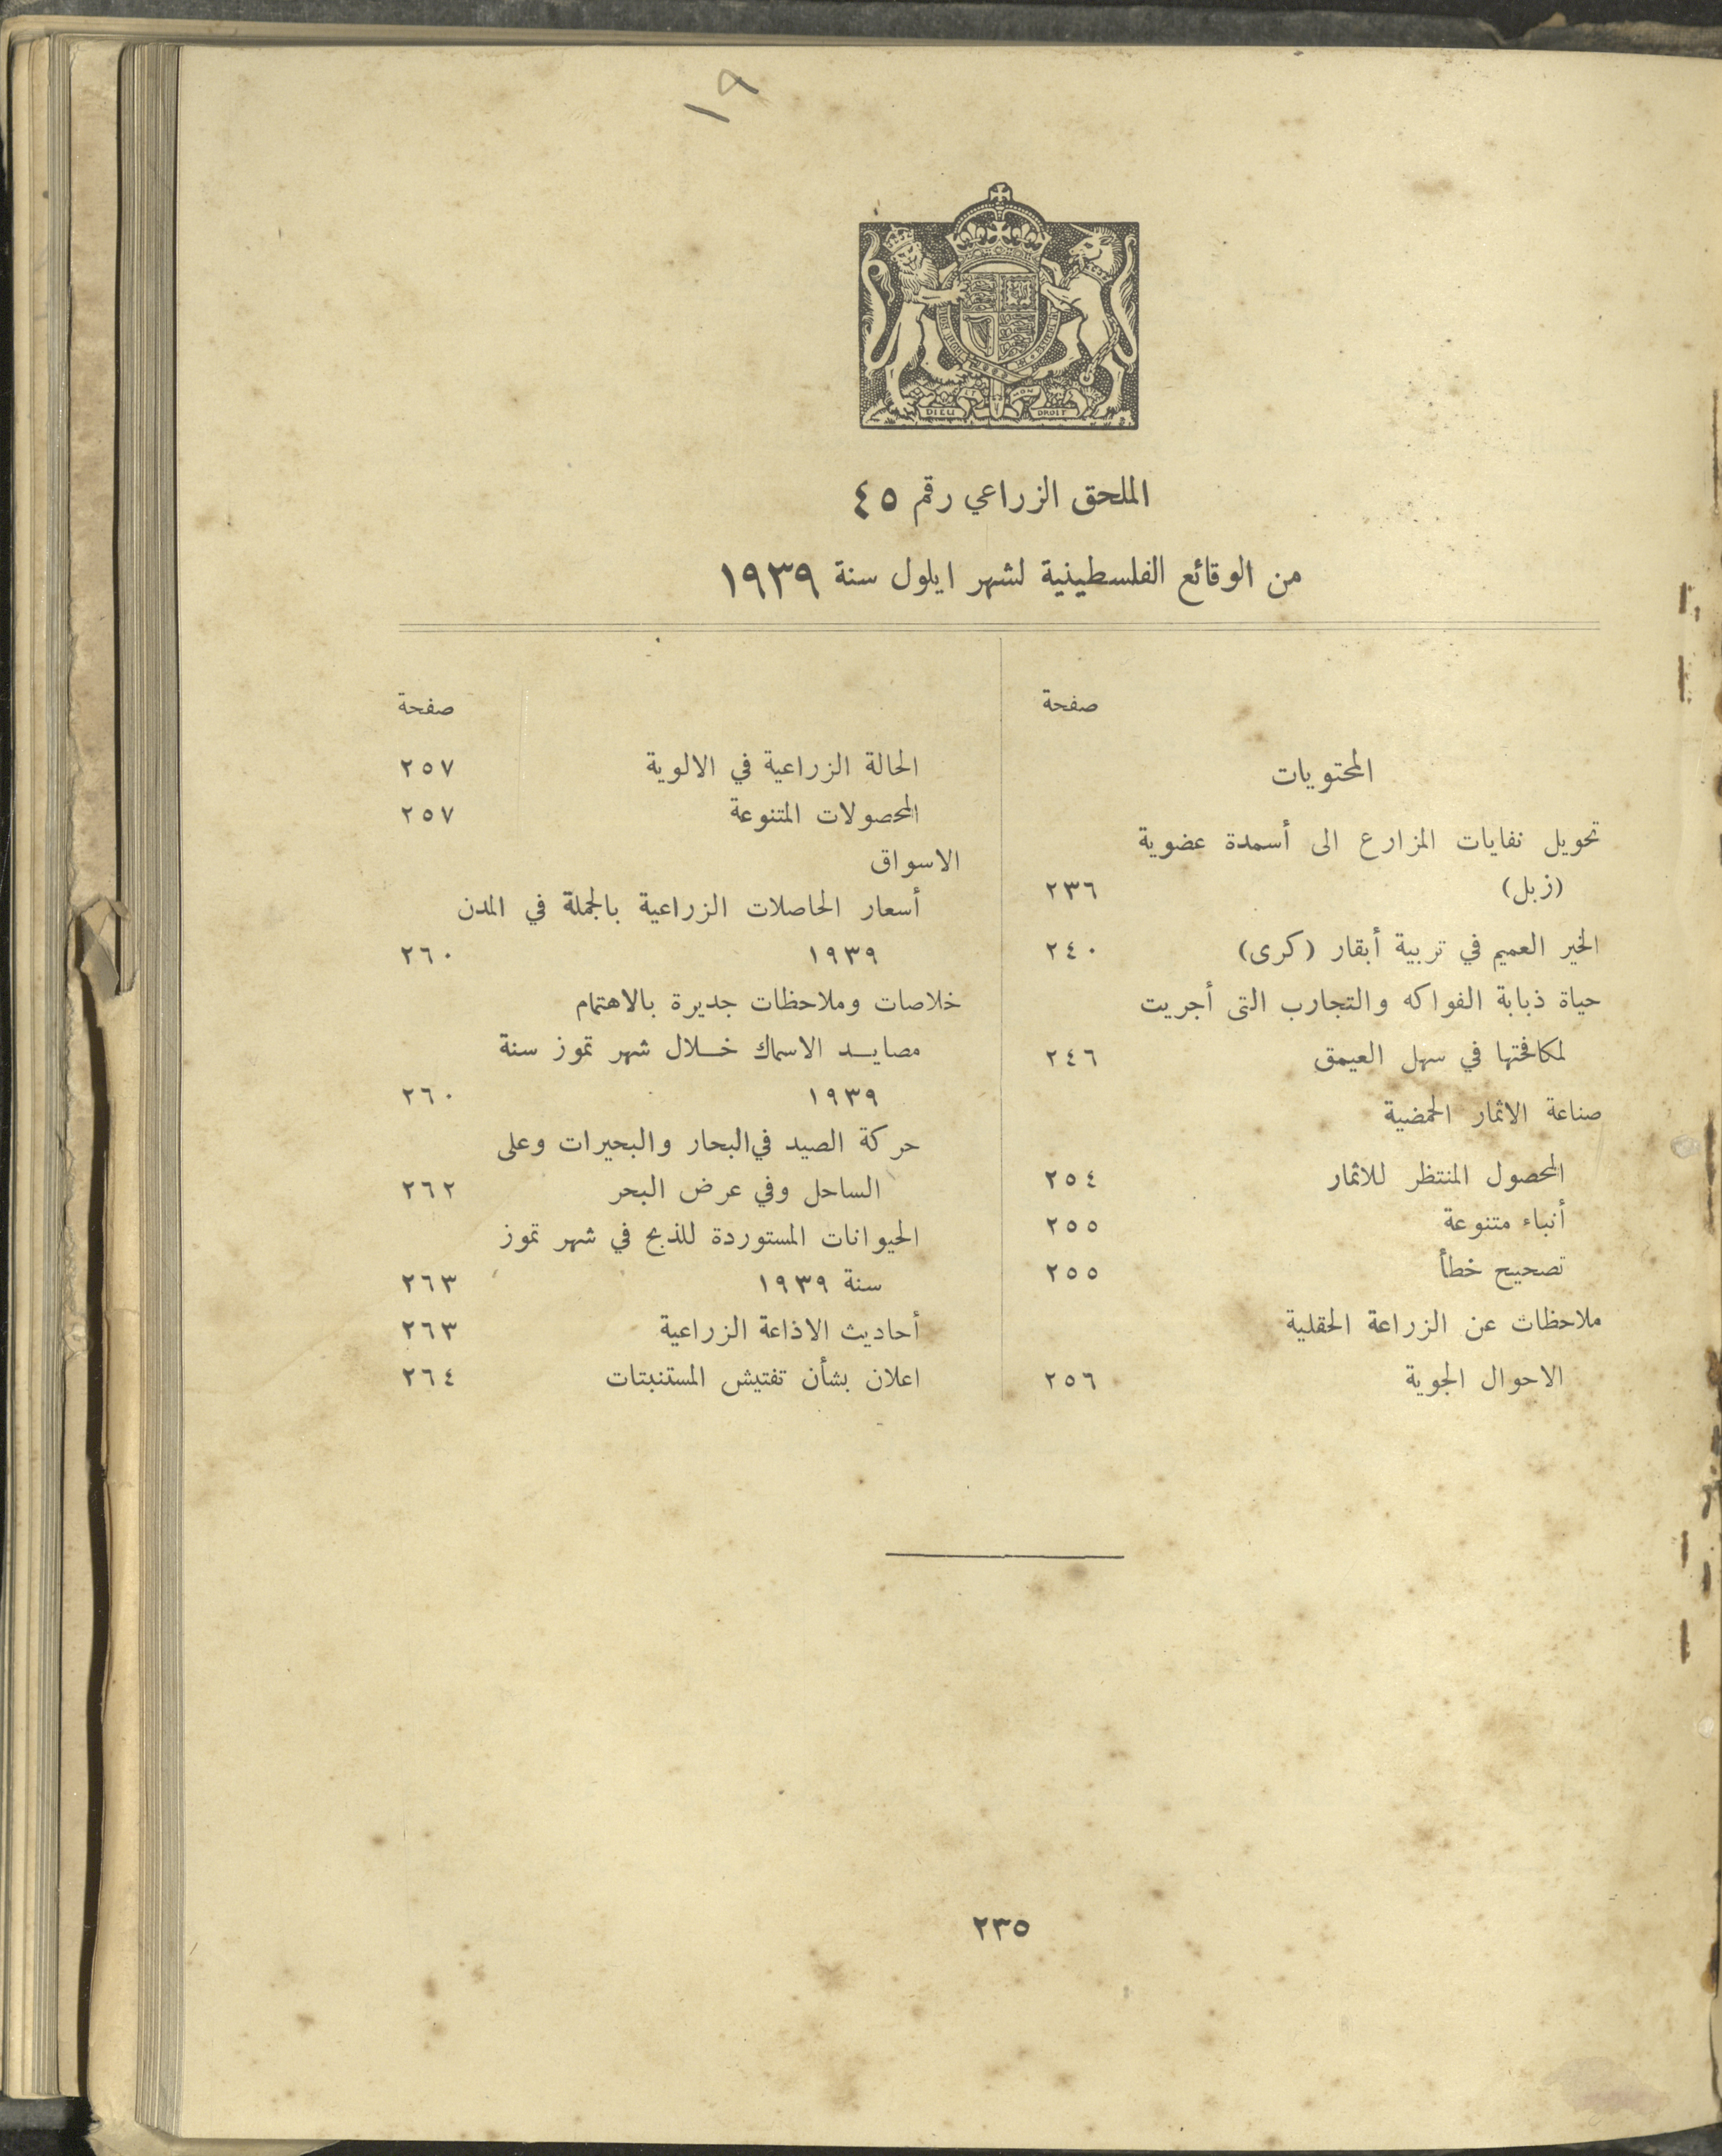 ١٩
DIEU
DROIT
الملحق الزراعي رقم ٤٥
من الوقائع الفلسطينية لشهر ايلول سنة ١٩٣٩
صفحة
المحتويات
تحويل نفايات المزارع الى أسمدة عضوية
(زبل) ٢٣٦
الخير العميم في تربية أبقار (كرى) ٢٤٠
حياة ذبابة الفواكه والتجارب التى أجريت
لمكافحتها في سهل العيمق ٢٤٦
صناعة الاثمار الحمضية
المحصول المنتظر للاثمار ٢٥٤
أنباء متنوعة ٢٥٥
تصحيح خطأ ٢٥٥
ملاحظات عن الزراعة الحقلية
الاحوال الجوية ٢٥٦
صفحة
الحالة الزراعية في الالوية ٢٥٧
المحصولات المتنوعة ٢٥٧
الاسواق
أسعار الحاصلات الزراعية بالجملة في المدن
١٩٣٩ ٢٦٠
خلاصات وملاحظات جديرة بالاهتمام
مصايد الاسماك خلال شهر تموز سنة
١٩٣٩ ٢٦٠
حركة الصيد في البحار والبحيرات وعلى
الساحل وفي عرض البحر ٢٦٢
الحيوانات المستوردة للذبح في شهر تموز
سنة ١٩٣٩ ٢٦٣
أحاديث الاذاعة الزراعية ٢٦٣
اعلان بشأن تفتيش المستنبتات ٢٦٤
٢٣٥